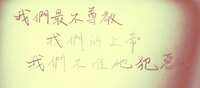 我們最不尊敬
我們的上帝
我們不准他犯惡